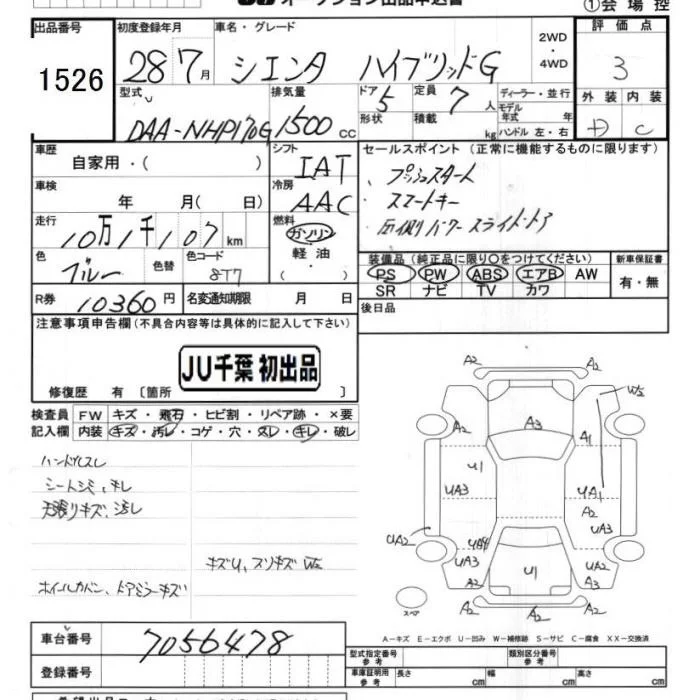 オークション出品申込書
①会場控
出品番号 初度登録年月 車名・グレード 2WD・4WD 評価点
1526 28 7月 シエンタ ハイブリッドG 3
型式 排気量 ドア 5 定員 7人 ディーラー・並行 外装 内装
DAA-NHP170G 1500cc 形状 積載 kg モデル年式 年 ハンドル 左・右 D C
車歴 シフト セールスポイント(正常に機能するものに限ります)
自家用・( ) IAT プッシュスタート
車検 冷房 スマートキー
年 月( 日) AAC 両側パワースライドドア
走行 燃料
10万1千107km ガソリン
色 色替 色コード 軽油 装備品(純正品に限り○をつけてください) 新車保証書
ブルー 8T7 ・( ) PS PW ABS エアB AW 有・無
R券 10360円 名変通知期限 月 日 SR ナビ TV カワ
注意事項申告欄(不具合内容等は具体的に記入して下さい) 後日品
JU千葉 初出品
修復歴 有〔箇所 〕
検査員 FW キズ・飛石・ヒビ割・リペア跡・×要
記入欄 内装 キズ・汚レ・コゲ・穴・スレ・キレ・破レ
ハンドルスレ
シートシミ、キレ
天張りキズ、汚レ
キズU、スリキズ W2
ホイールカバー、ドアミラーキズ
A2 A2
W2
A2 A3 A1
U1
UA3 UA1
A2
UA3
UA2 UA4
UA3 UA2
U1 A3
スペア A2 A2 A2
A-キズ E-エクボ U-凹み W-補修跡 S-サビ C-腐食 XX-交換済
車台番号 7056478 型式指定番号 参考 類別区分番号 参考
登録番号 車庫証明用 参考 長さ cm 幅 cm 高さ cm